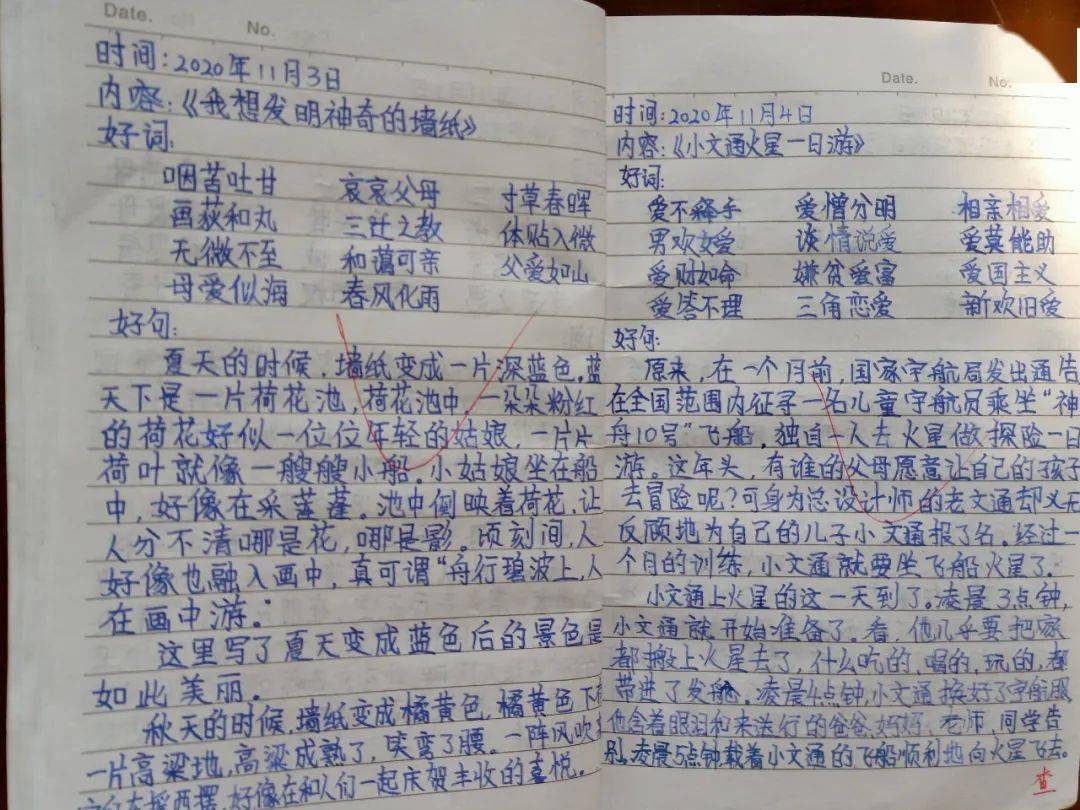 Date.
No.
时间：2020年11月3日
内容：《我想发明神奇的墙纸》
好词：
咽苦吐甘 哀哀父母 寸草春晖
画荻和丸 三迁之教 体贴入微
无微不至 和蔼可亲 父爱如山
母爱似海 春风化雨
好句：
夏天的时候，墙纸变成一片深蓝色。蓝
天下是一片荷花池，荷花池中，一朵朵粉红
的荷花好似一位位年轻的姑娘，一片片
荷叶就像一艘艘小船。小姑娘坐在船
中，好像在采莲蓬。池中倒映着荷花，让
人分不清哪是花，哪是影。顷刻间，人
好像也融入画中，真可谓“舟行碧波上，人
在画中游。”
这里写了夏天变成蓝色后的景色是
如此美丽。
秋天的时候，墙纸变成橘黄色，橘黄色下
一片高梁地，高梁成熟了，笑弯了腰。一阵风吹
摇西摆，好像在和人们一起庆贺丰收的喜悦。
Date.
No.
时间：2020年11月4日
内容：《小文通火星一日游》
好词：
爱不释手 爱憎分明 相亲相爱
男欢女爱 谈情说爱 爱莫能助
爱财如命 嫌贫爱富 爱国主义
爱答不理 三角恋爱 新欢旧爱
好句：
原来，在一个月前，国家宇航局发出通告
在全国范围内征寻一名儿童宇航员乘坐“神
舟10号”飞船，独自一人去火星做探险一日
游。这年头，有谁的父母愿意让自己的孩子
去冒险呢？可身为总设计师的老文通却义无
反顾地为自己的儿子小文通报了名。经过一
个月的训练，小文通就要坐飞船火星了。
小文通上火星的这一天到了。凌晨3点钟，
小文通就开始准备了。看，他几乎要把家
都搬上火星去了，什么吃的，喝的，玩的，都
带进了发船。凌晨4点钟，小文通换好了宇航服
他含着眼泪和来送行的爸爸、妈妈、老师、同学告
别。凌晨5点钟，载着小文通的飞船顺利地向火星飞去。
查